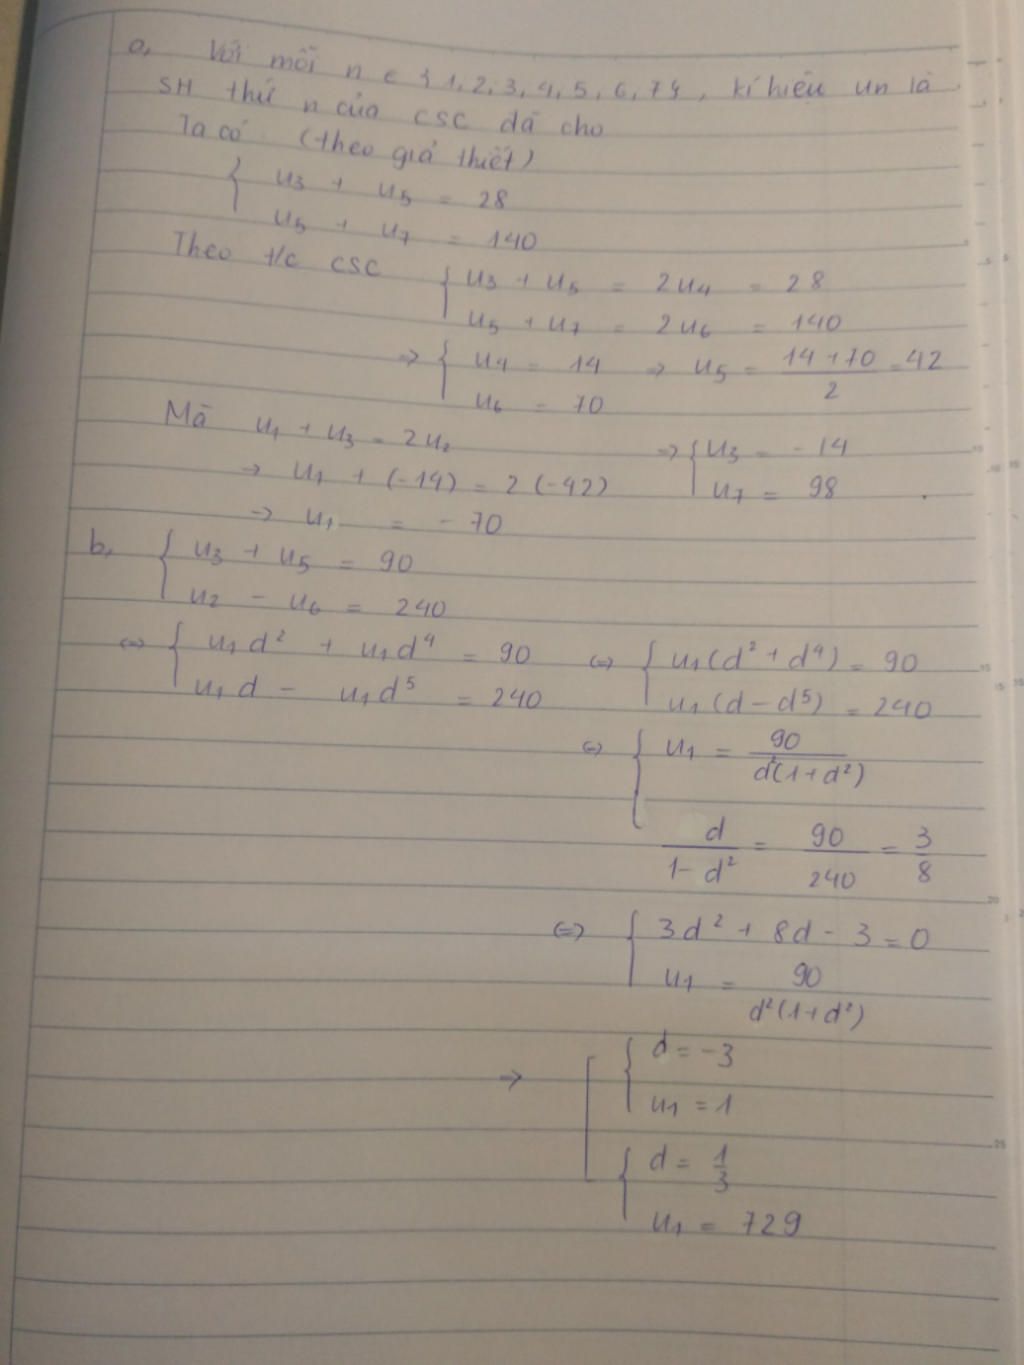 a, Với mỗi n ∈ {1, 2, 3, 4, 5, 6, 7}, kí hiệu un là
SH thứ n của CSC đã cho
Ta có (theo giả thiết)
{ u3 + u5 = 28
u5 + u7 = 140
Theo t/c CSC { u3 + u5 = 2u4 = 28
u5 + u7 = 2u6 = 140
=> { u4 = 14 => u5 = (14 + 70)/2 = 42
u6 = 70
Mà u1 + u3 = 2u2 => { u3 = -14
-> u1 + (-14) = 2(-42) u7 = 98
-> u1 = -70
b, { u3 + u5 = 90
u2 - u6 = 240
<=> { u1d² + u1d⁴ = 90 <=> { u1(d² + d⁴) = 90
u1d - u1d⁵ = 240 u1(d - d⁵) = 240
<=> { u1 = 90/(d²(1+d²))
d/(1 - d²) = 90/240 = 3/8
<=> { 3d² + 8d - 3 = 0
u1 = 90/(d²(1+d²))
-> [ { d = -3
u1 = 1
{ d = 1/3
u1 = 729